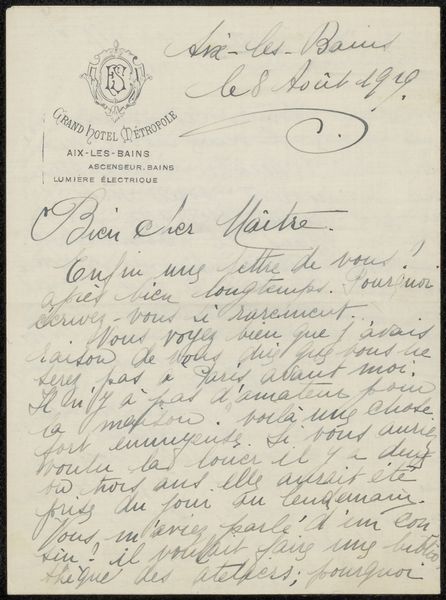 Aix-les-Bains
le 8 Août 1919.
ES
GRAND HOTEL MÉTROPOLE
AIX-LES-BAINS
ASCENSEUR, BAINS
LUMIÈRE ÉLECTRIQUE
Bien cher Maître.
Enfin une lettre de vous!
après bien longtemps. Pourquoi
écrivez-vous si rarement.
Vous voyez bien que j'avais
raison de vous dire que vous ne
serez pas à Paris avant moi.
Il n'y a pas d'amateur pour
la maison. voilà une chose
fort ennuyeuse. Si vous auriez
voulu la louer il y a deux
ou trois ans elle aurait été
prise du jour au lendemain.
Vous m'aviez parlé d'un cou
sin! il voulait faire une biblio
thèque des ateliers; pourquoi